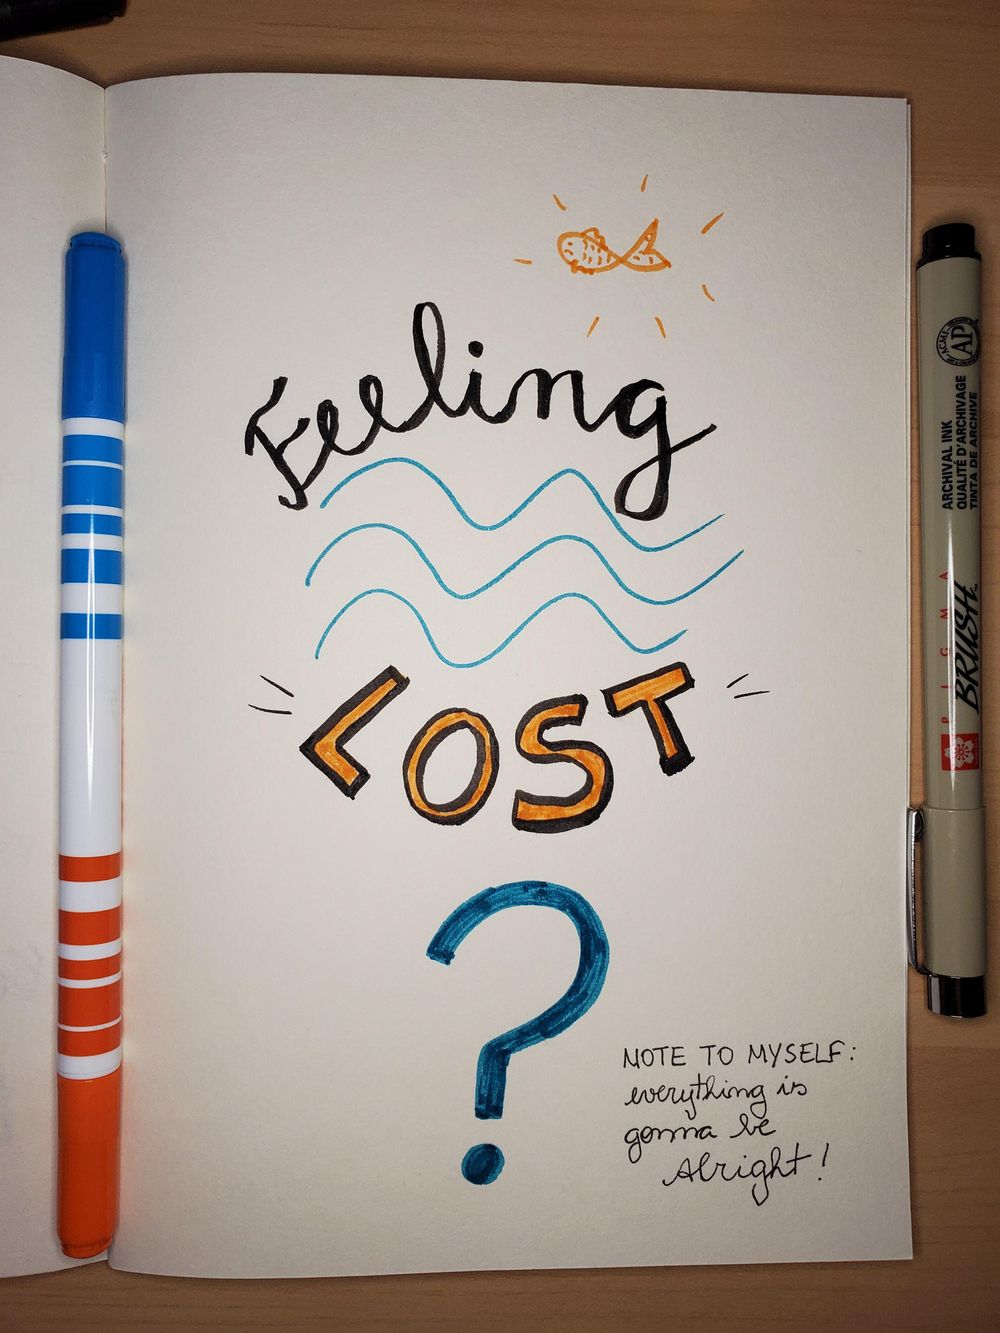 Feeling
LOST
?
NOTE TO MYSELF:
everything is
gonna be
Alright!
ACMI
AP
ARCHIVAL INK
QUALITÉ D'ARCHIVAGE
TINTA DE ARCHIVE
PIGMA
BRUSH